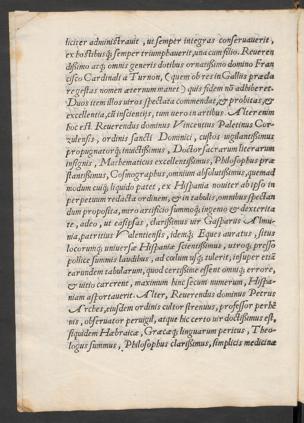 liciter administrauit, ut semper integras conseruauerit,
ex hostibusq́; semper triumphauerit, una cum filio. Reueren
dißimo atq́; omnis generis dotibus ornatißimo domino Fran
cisco Cardinali a Turnon, (quem ob res in Gallijs præcla
re gestas nomen æternum manet) quis fidem nõ adhiberet.
Duos item illos uiros spectata commendat, & probitas, &
excellentia, cũ in scientijs, tum uero in artibus. Alter enim
hoc est Reuerendus dominus Vincentius Paletinus Cor-
zulensis, ordinis sancti Dominici, custos uigilantißimus
propugnatorq́; inuictißimus, Doctor sacrarum literarum
insignis, Mathematicus excellentißimus, Philosophus præ
stantißimus, Cosmographus, omnium absolutißimus, quemad
modum cuiq́; liquido patet, ex Hispania nouiter ab ipso in
perpetuum redacta ordinem, & in tabulis, omnibus spectan
dum proposita, miro artificio summoq́; ingenio & dexterita
te, adeo, ut easipsas, clarißimus uir Gasparus Almu-
nia, patritius Valentiensis, idemq́; Eques auratus, situs
locorumq́; uniuersæ Hispaniæ scientißimus, utroq́; presso
pollice summis laudibus, ad cœlum usq́; tulerit, insuper etiã
earundem tabularum, quod certißime essent omniq́; errore,
& uitio carerent, maximum hinc secum numerum, Hispa-
niam asportauerit. Alter, Reuerendus dominus Petrus
Arches, eiusdem ordinis cultor strenuus, professor perhẽ
nis, obseruator peruigil, atque hic certo uir doctißimus est,
siquidem Hæbraicæ, Græcæq́; linguarum peritus, Theo-
logus summus, Philosophus clarißimus, simplicis medicinæ